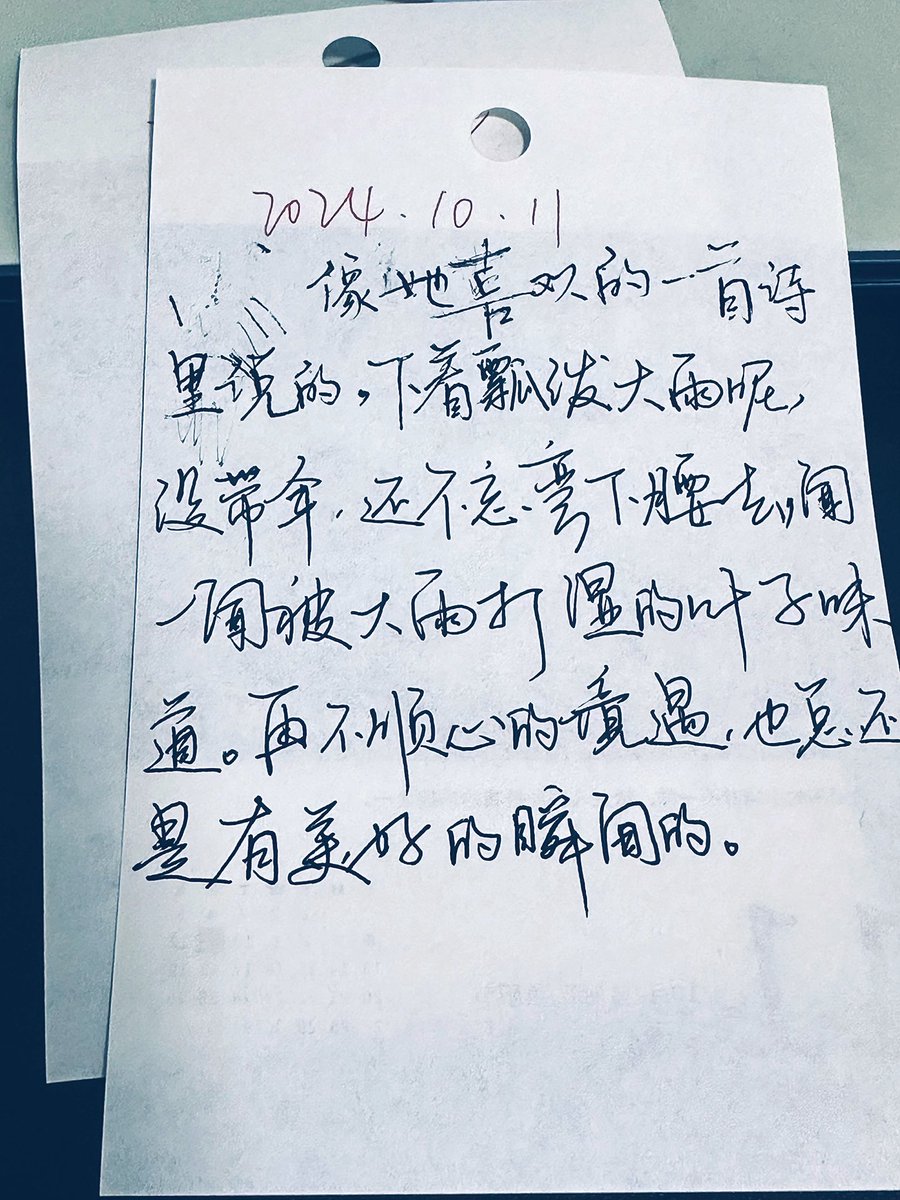 2024.10.11
像她喜欢的一首诗
里说的。下着瓢泼大雨呢,
没带伞,还不忘弯下腰去闻
一闻被大雨打湿的叶子味
道。再不顺心的境遇,也总还
是有美好的瞬间的。